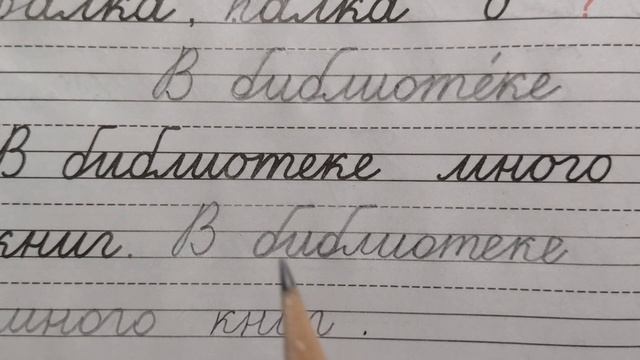 палка о ?
В библиоте́ке
В библиотеке много
книг. В библиотеке
много книг.